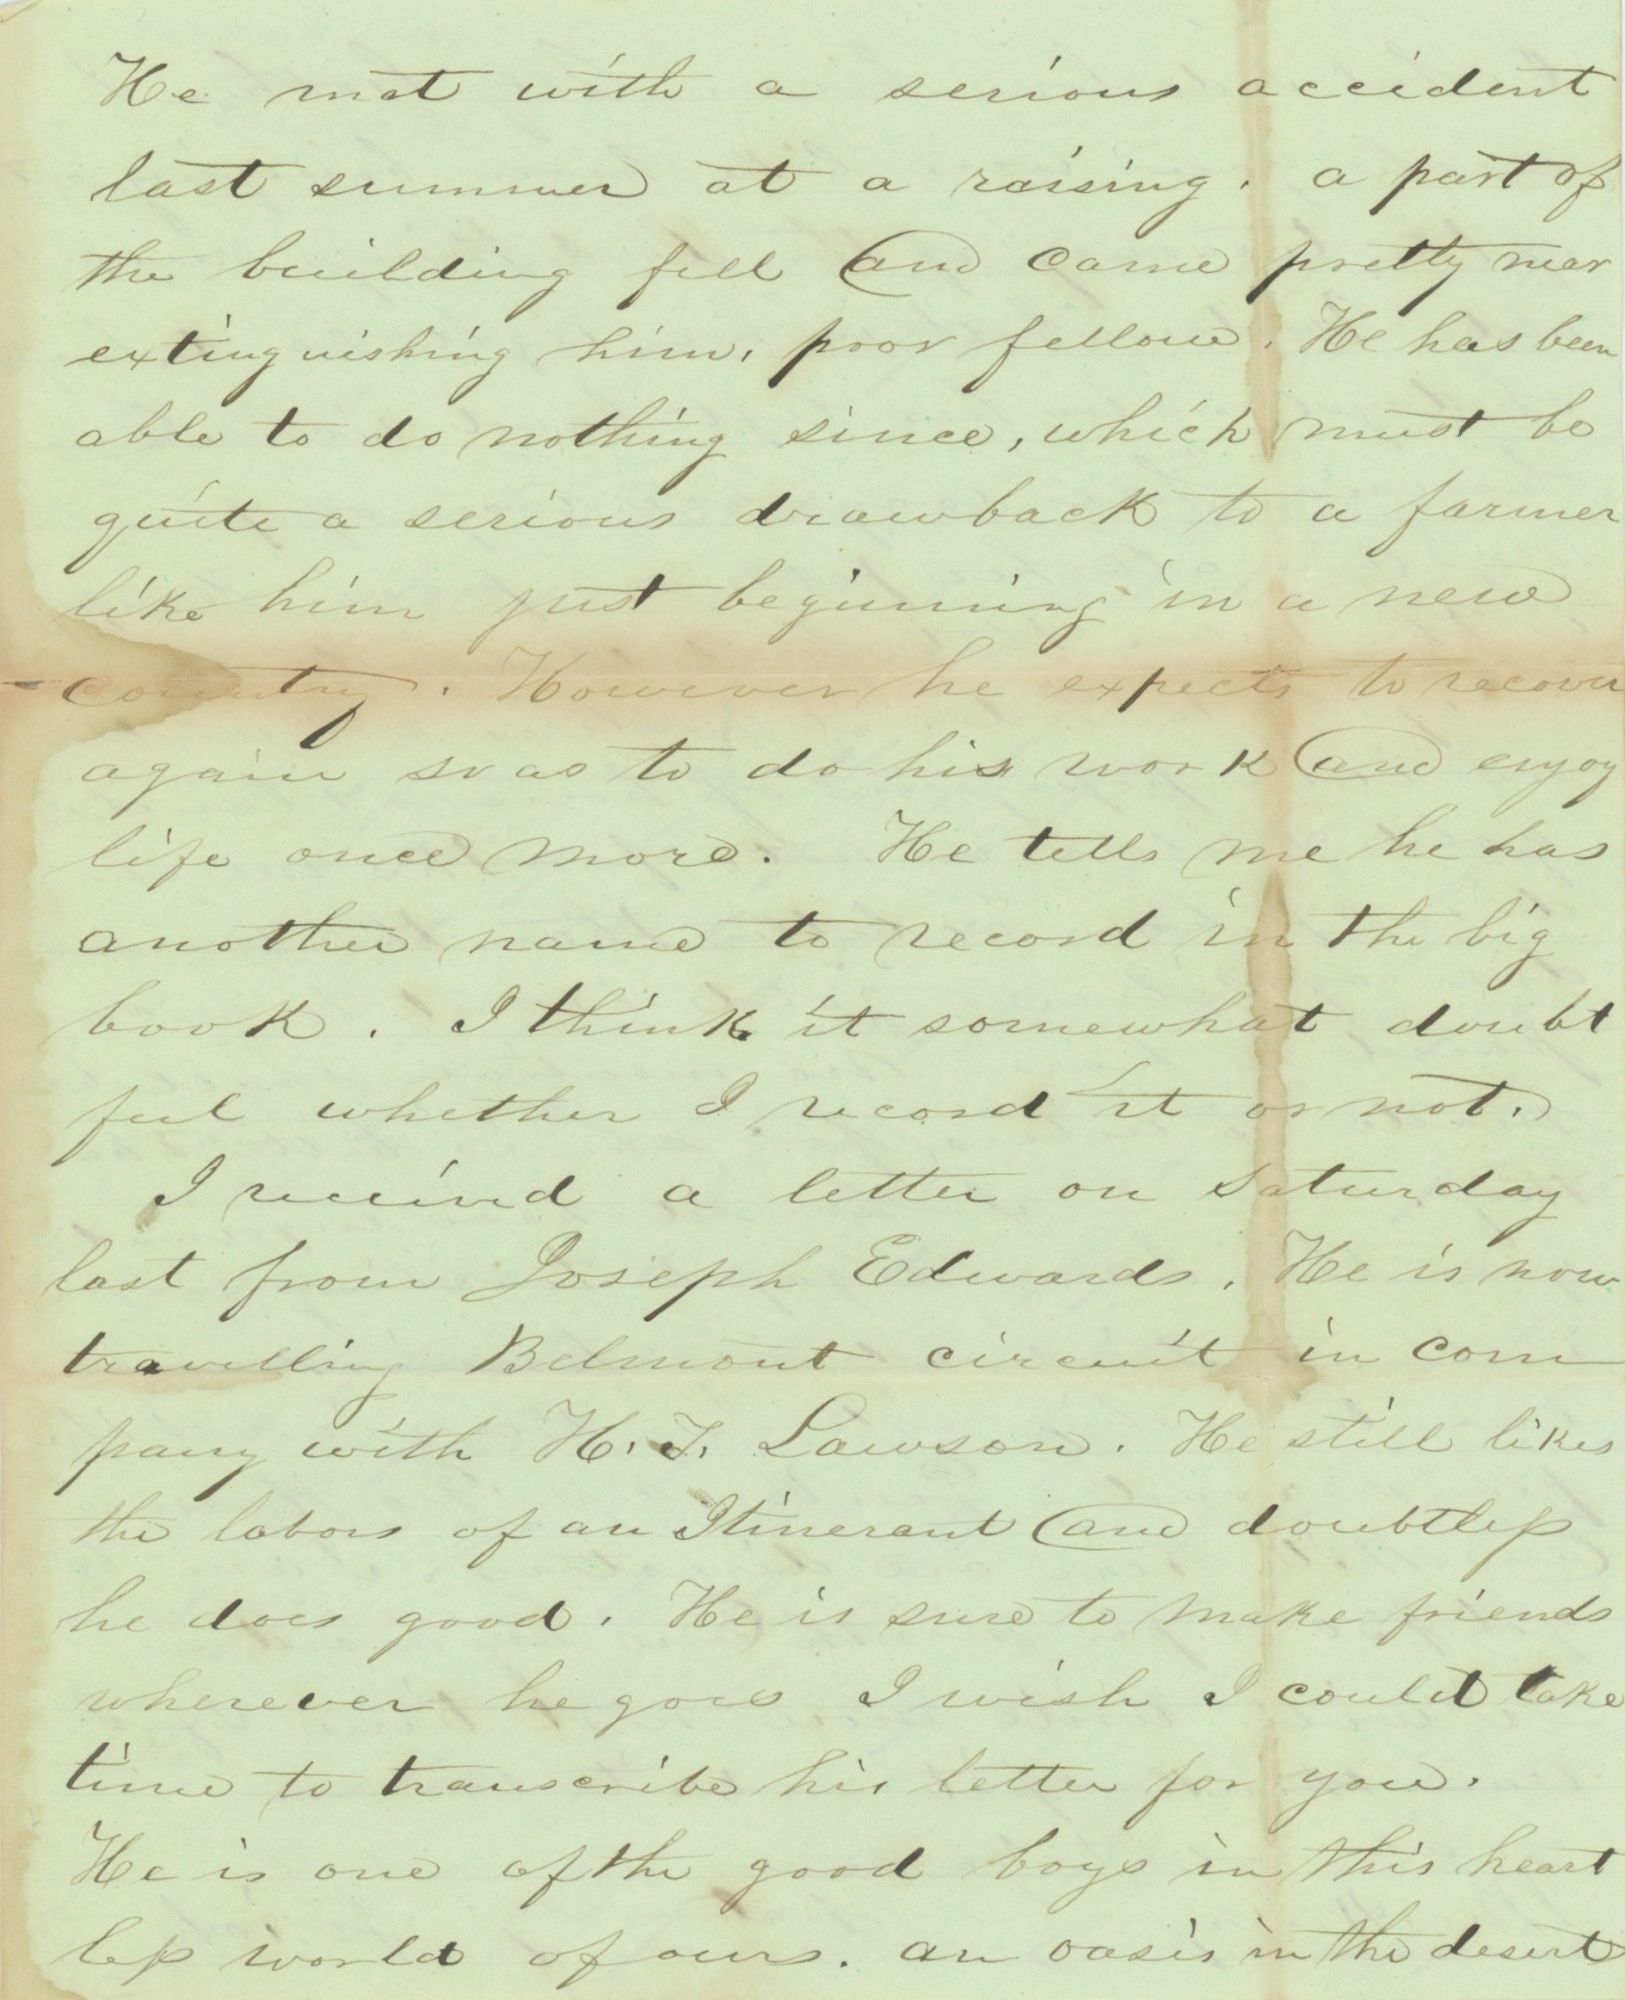 He met with a serious accident
last summer at a raising. a part of
the building fell and came pretty near
extinguishing him, poor fellow. He has been
able to do nothing since, which must be
quite a serious drawback to a farmer
like him just beginning in a new
country. However he expects to recover
again so as to do his work and enjoy
life once more. He tells me he has
another name to record in the big
book. I think it somewhat doubt
ful whether I record it or not.
I received a letter on Saturday
last from Joseph Edwards. He is now
travelling Belmont circuit in com
pany with H. T. Lawson. He still likes
the labors of an Itinerant and doubtless
he does good. He is sure to make friends
wherever he goes I wish I could take
time to transcribe his letter for you.
He is one of the good boys in this heart
less world of ours. an oasis in the desert